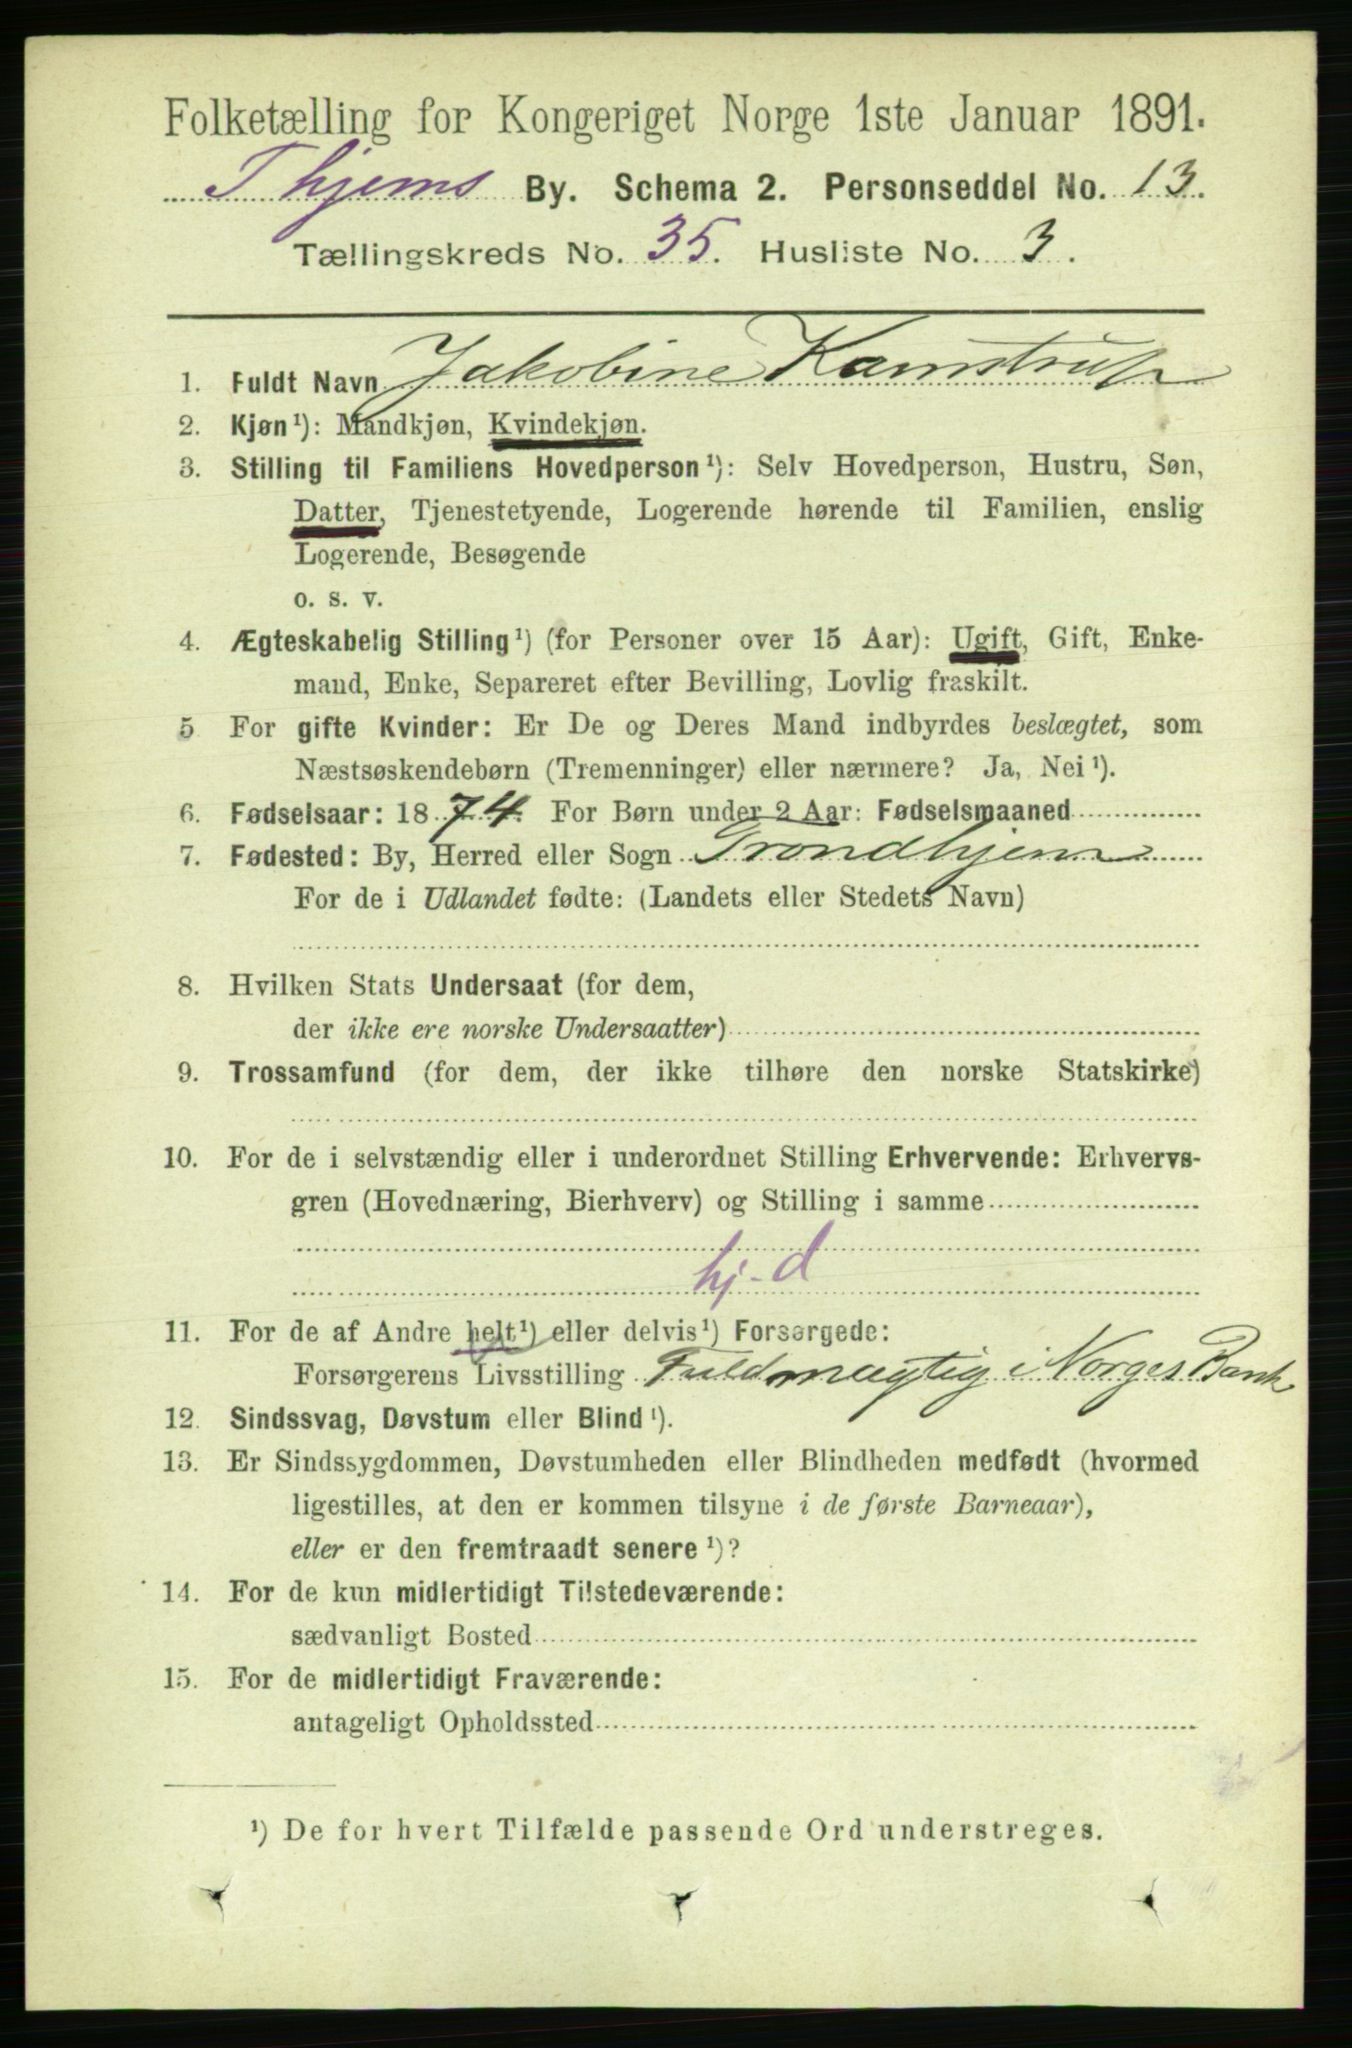 Folketælling for Kongeriget Norge 1ste Januar 1891.
Thjems By. Schema 2. Personseddel No. 13.
Tællingskreds No. 35. Husliste No. 3.
1. Fuldt Navn Jakobine Kamstrup
2. Kjøn¹): Mandkjøn, Kvindekjøn.
3. Stilling til Familiens Hovedperson¹): Selv Hovedperson, Hustru, Søn,
Datter, Tjenestetyende, Logerende hørende til Familien, enslig
Logerende, Besøgende
o. s. v.
4. Ægteskabelig Stilling¹) (for Personer over 15 Aar): Ugift, Gift, Enke-
mand, Enke, Separeret efter Bevilling, Lovlig fraskilt.
5 For gifte Kvinder: Er De og Deres Mand indbyrdes beslægtet, som
Næstsøskendebørn (Tremenninger) eller nærmere? Ja, Nei¹).
6. Fødselsaar: 1874. For Børn under 2 Aar: Fødselsmaaned
7. Fødested: By, Herred eller Sogn Trondhjem
For de i Udlandet fødte: (Landets eller Stedets Navn)
8. Hvilken Stats Undersaat (for dem,
der ikke ere norske Undersaatter)
9. Trossamfund (for dem, der ikke tilhøre den norske Statskirke)
10. For de i selvstændig eller i underordnet Stilling Erhvervende: Erhvervs-
gren (Hovednæring, Bierhverv) og Stilling i samme
hj-d
11. For de af Andre helt¹) eller delvis¹) Forsørgede:
Forsørgerens Livsstilling Fuldmægtig i Norges Bank
12. Sindssvag, Døvstum eller Blind¹).
13. Er Sindssygdommen, Døvstumheden eller Blindheden medfødt (hvormed
ligestilles, at den er kommen tilsyne i de første Barneaar),
eller er den fremtraadt senere¹)?
14. For de kun midlertidigt Tilstedeværende:
sædvanligt Bosted
15. For de midlertidigt Fraværende:
antageligt Opholdssted
¹) De for hvert Tilfælde passende Ord understreges.